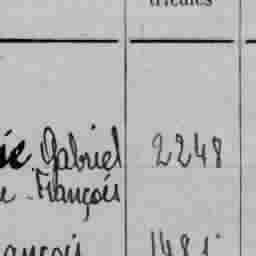 Gabriel 2248
François
ançois 1481